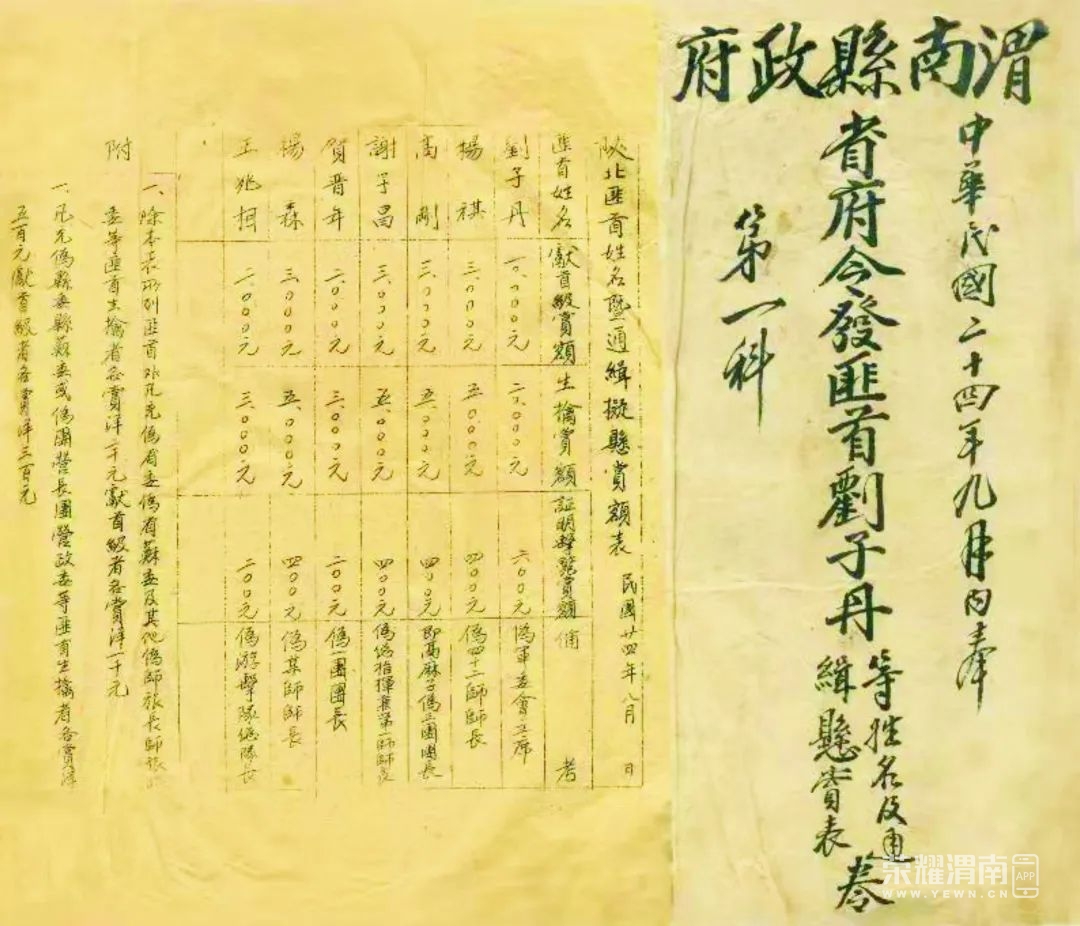 渭南縣政府
中華民國二十四年九月內奉
省府令發匪首劉子丹等姓名及通
緝懸賞表
卷
第一科
陝北匪首姓名暨通緝擬懸賞額表 民國廿四年八月 日
匪首姓名 獻首級賞額 生擒賞額 証明擊斃賞額 備考
劉子丹 一〇、〇〇〇元 二〇、〇〇〇元 六〇〇元 偽軍委會主席
楊祺 三、〇〇〇元 五、〇〇〇元 四〇〇元 偽四十二師師長
高剛 三、〇〇〇元 五、〇〇〇元 四〇〇元 即高麻子偽三團團長
謝子昌 三、〇〇〇元 五、〇〇〇元 四〇〇元 偽總指揮兼第一師師長
賀晋年 二、〇〇〇元 三、〇〇〇元 二〇〇元 偽一團團長
楊森 三、〇〇〇元 五、〇〇〇元 四〇〇元 偽某師師長
王兆相 二、〇〇〇元 三、〇〇〇元 二〇〇元 偽游擊隊總隊長
附
一、除本表所列匪首外凡充偽省委偽省蘇委及其他偽師旅長師旅政
委等匪首生擒者各賞洋二千元獻首級者各賞洋一千元
一、凡充偽縣委縣蘇委或偽團營長團營政委等匪首生擒者各賞洋
五百元獻首級者各賞洋三百元
荣耀渭南 APP
WWW.YEWN.CN